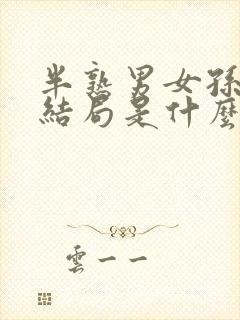 半熟男女孫
結局是什麼
雲一一